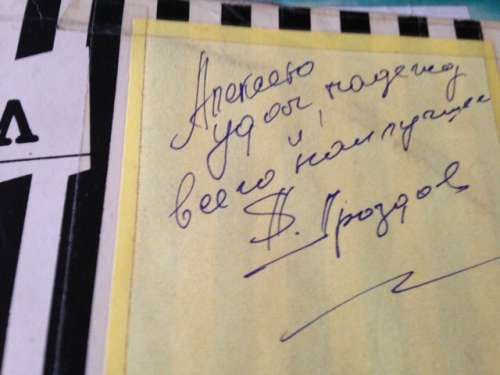 Алексею
удачи, надежд
и
всего наилучшего
Дроздов